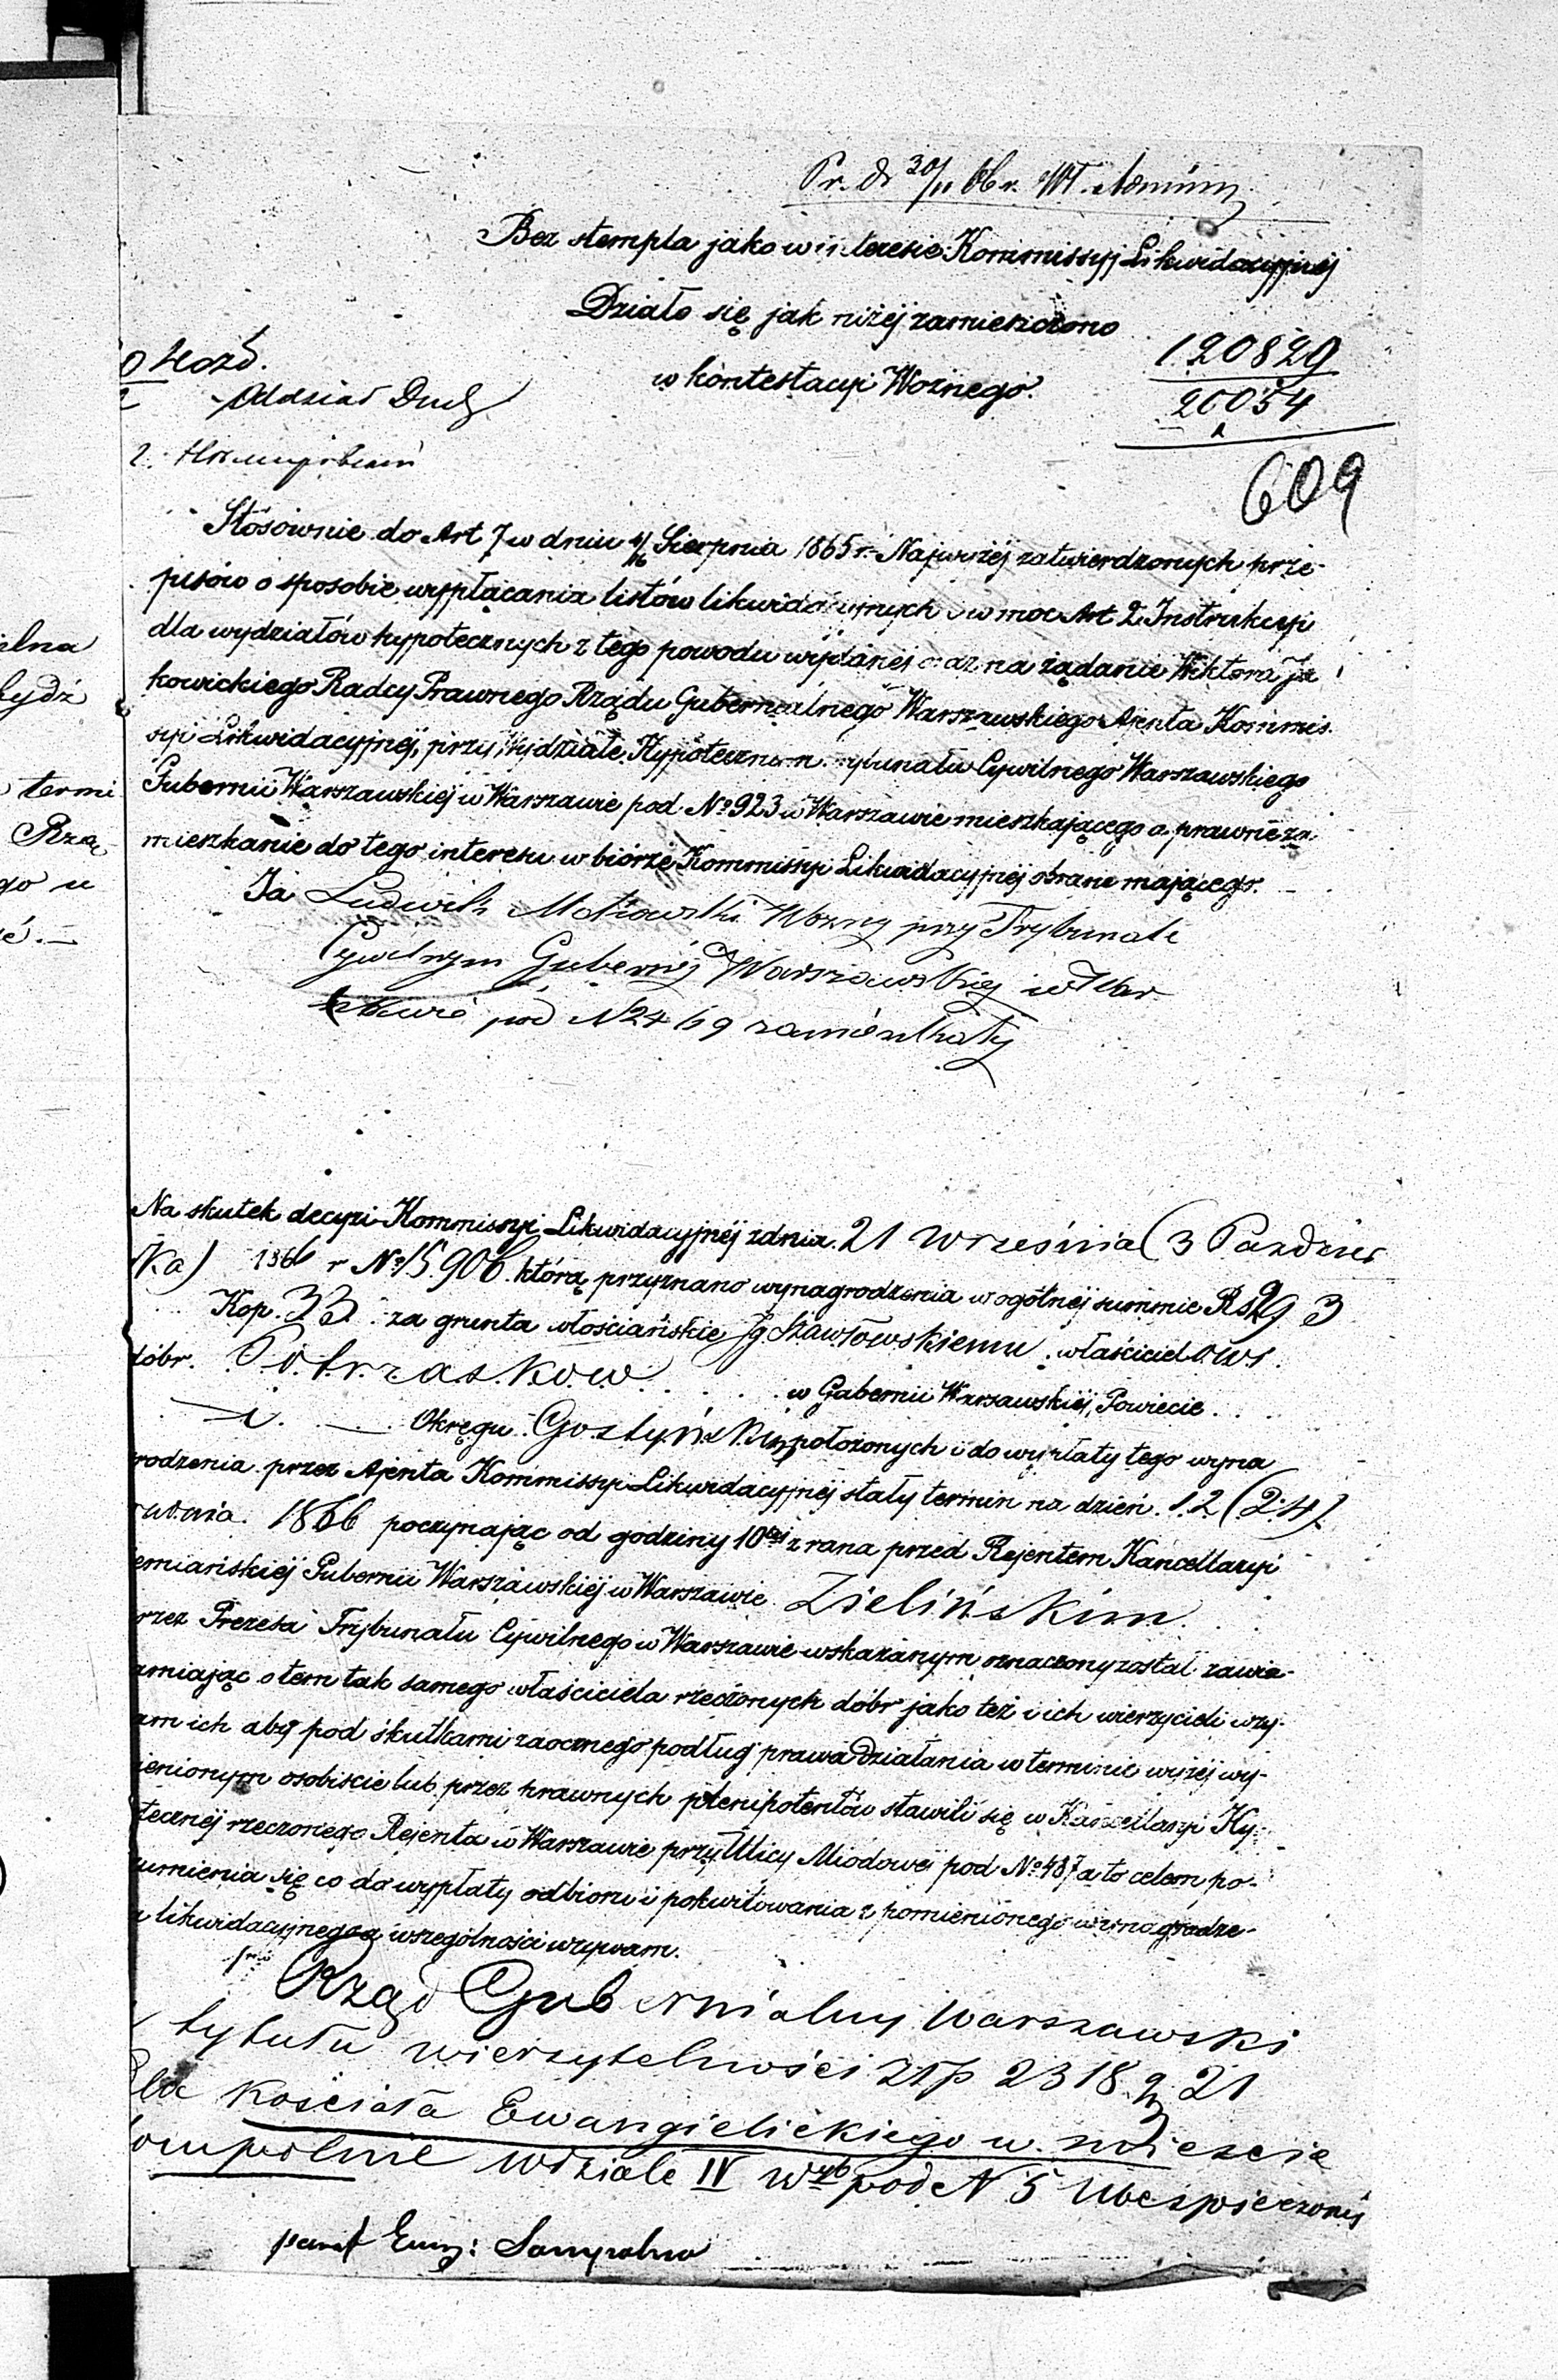 Pr. d. 30/11 66 r. WT. Admin
Bez stempla jako w interesie Kommissyi Likwidacyjnéj
Działo się jak niżéj zamieszczono
w kontestacyi Woźnego.
120829
20054
609
Oddział Duch
Stósownie do Art 7 w dniu 4/16 Sierpnia 1865 r. Najwyżéj zatwierdzonych prze-
pisów o sposobie wypłacania listów likwidacyjnych i w moc Art 2 Instrukcyi
dla wydziałów hypotecznych z tego powodu wydanéj oraz na żądanie Wiktora Ja
kowickiego Radcy Prawnego Rządu Gubernialnego Warszawskiego Ajenta Kommis.
syi Likwidacyjnéj, przy Wydziale Hypotecznem Trybunału Cywilnego Warszawskiego
Gubernii Warszawskiéj w Warszawie pod No 923 w Warszawie mieszkającego a prawne za
mieszkanie do tego interesu w biórze Kommissyi Likwidacyjnéj obrane mającego.
Ja Ludwik Wozny przy Trybunale
Cywilnym Gubernij Warszawskiej w War
szawie pod N 2469 zamieszkały
Na skutek decyzi Kommissyi Likwidacyjnéj z dnia 21 Września (3 Paździer
ka) 1866 r No 15906 którą przyznano wynagrodzenia w ogólnéj summie Rs 293
Kop. 33 za grunta włościańskie Ig. Szawłowskiemu właścicielowi
dóbr. Potrzasków w Gubernii Warszawskiéj, Powiecie
i Okręgu Gostyńskim położonych i do wypłaty tego wyna
rodzenia przez Ajenta Kommissyi Likwidacyjnéj stały termin na dzień 12 (24)
rudnia 1866 poczynając od godziny 10éj z rana przed Rejentem Kancellaryi
emiańskiéj Gubernii Warszawskiéj w Warszawie Zielińskim
rzez Prezesa Trybunału Cywilnego w Warszawie wskazanym oznaczony został zawia-
amiając o tem tak samego właściciela rzeczonych dóbr jako też i ich wierzycieli wzy-
am ich aby pod skutkami zaocznego podług prawa działania w terminie wyżéj wy-
ienionym osobiście lub przez prawnych plenipotentów stawili się w Kancellaryi Hy-
tecznéj rzeczonego Rejenta w Warszawie przy Ulicy Miodowéj pod No 487 a to celem po-
umienia się co do wypłaty odbioru i pokwitowania z pomienionego wynagrodze-
a likwidacyjnego a wszególności wzywam.
Rząd Gubernialny Warszawski
tytułu wierzytelności Złp 2318 g 21
Dla Kościoła Ewangielickiego w mieście
ompolnie w dziale IV Wzb pod N 5 Ubezpieczonéj
paraf Ewg: Sompolno
ilna
bydź
termi
Rzą-
go w